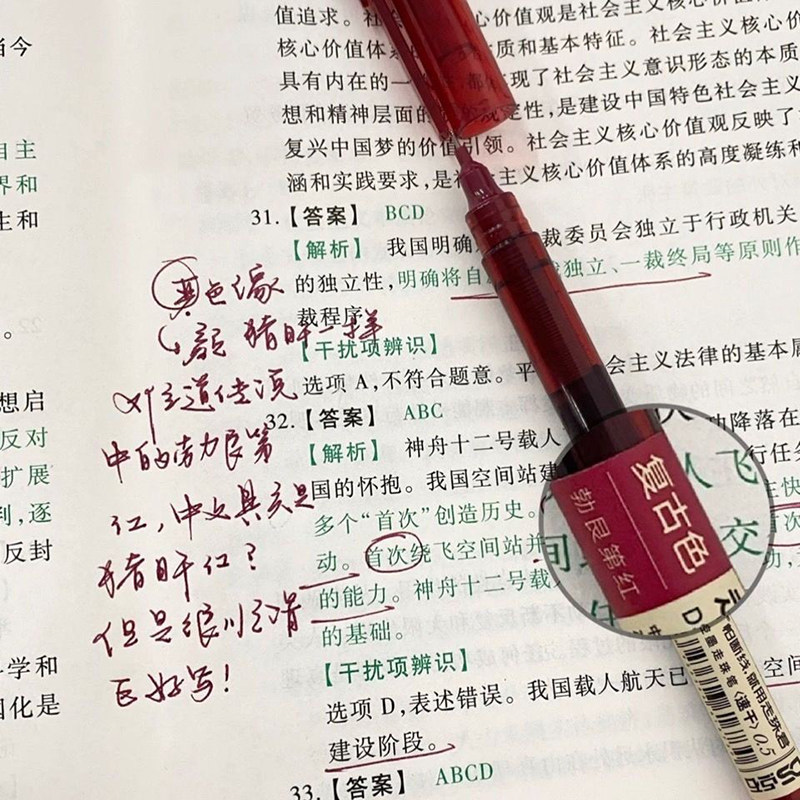 当今
自主
界和
生和
。
想启
反对
扩展
判,逐
反封
科学和
国化是
值追求。社会
心价值观是社会主义核
核心价值体
质和基本特征。社会主义核
具有内在的一
都
现了社会主义意识形态的本质
想和精神层面的
规定性,是建设中国特色社会主义
复兴中国梦的价值引领。社会主义核心价值观反映了
涵和实践要求,是社会主义核心价值体系的高度凝练和
31.【答案】 BCD
【解析】 我国明确
裁委员会独立于行政机关
的独立性,明确将自
独立、一裁终局等原则作
裁程序
【干扰项辨识】
选项 A,不符合题意。平
会主义法律的基本属
32.【答案】 ABC
【解析】 神舟十二号载人
功降落在
国的怀抱。我国空间站建
多个“首次”创造历史。
动。首次绕飞空间站并
的能力。神舟十二号载
的基础。
【干扰项辨识】
选项 D,表述错误。我国载人航天已
空间
建设阶段。
33.【答案】 ABCD
真色缘
颜 猪肝一样
中的勃艮第
红,中文其实是
猪肝红?
但是很川字滑
巨好写!
人飞
交
复古色
勃艮第红
走珠笔(速干) 0.5